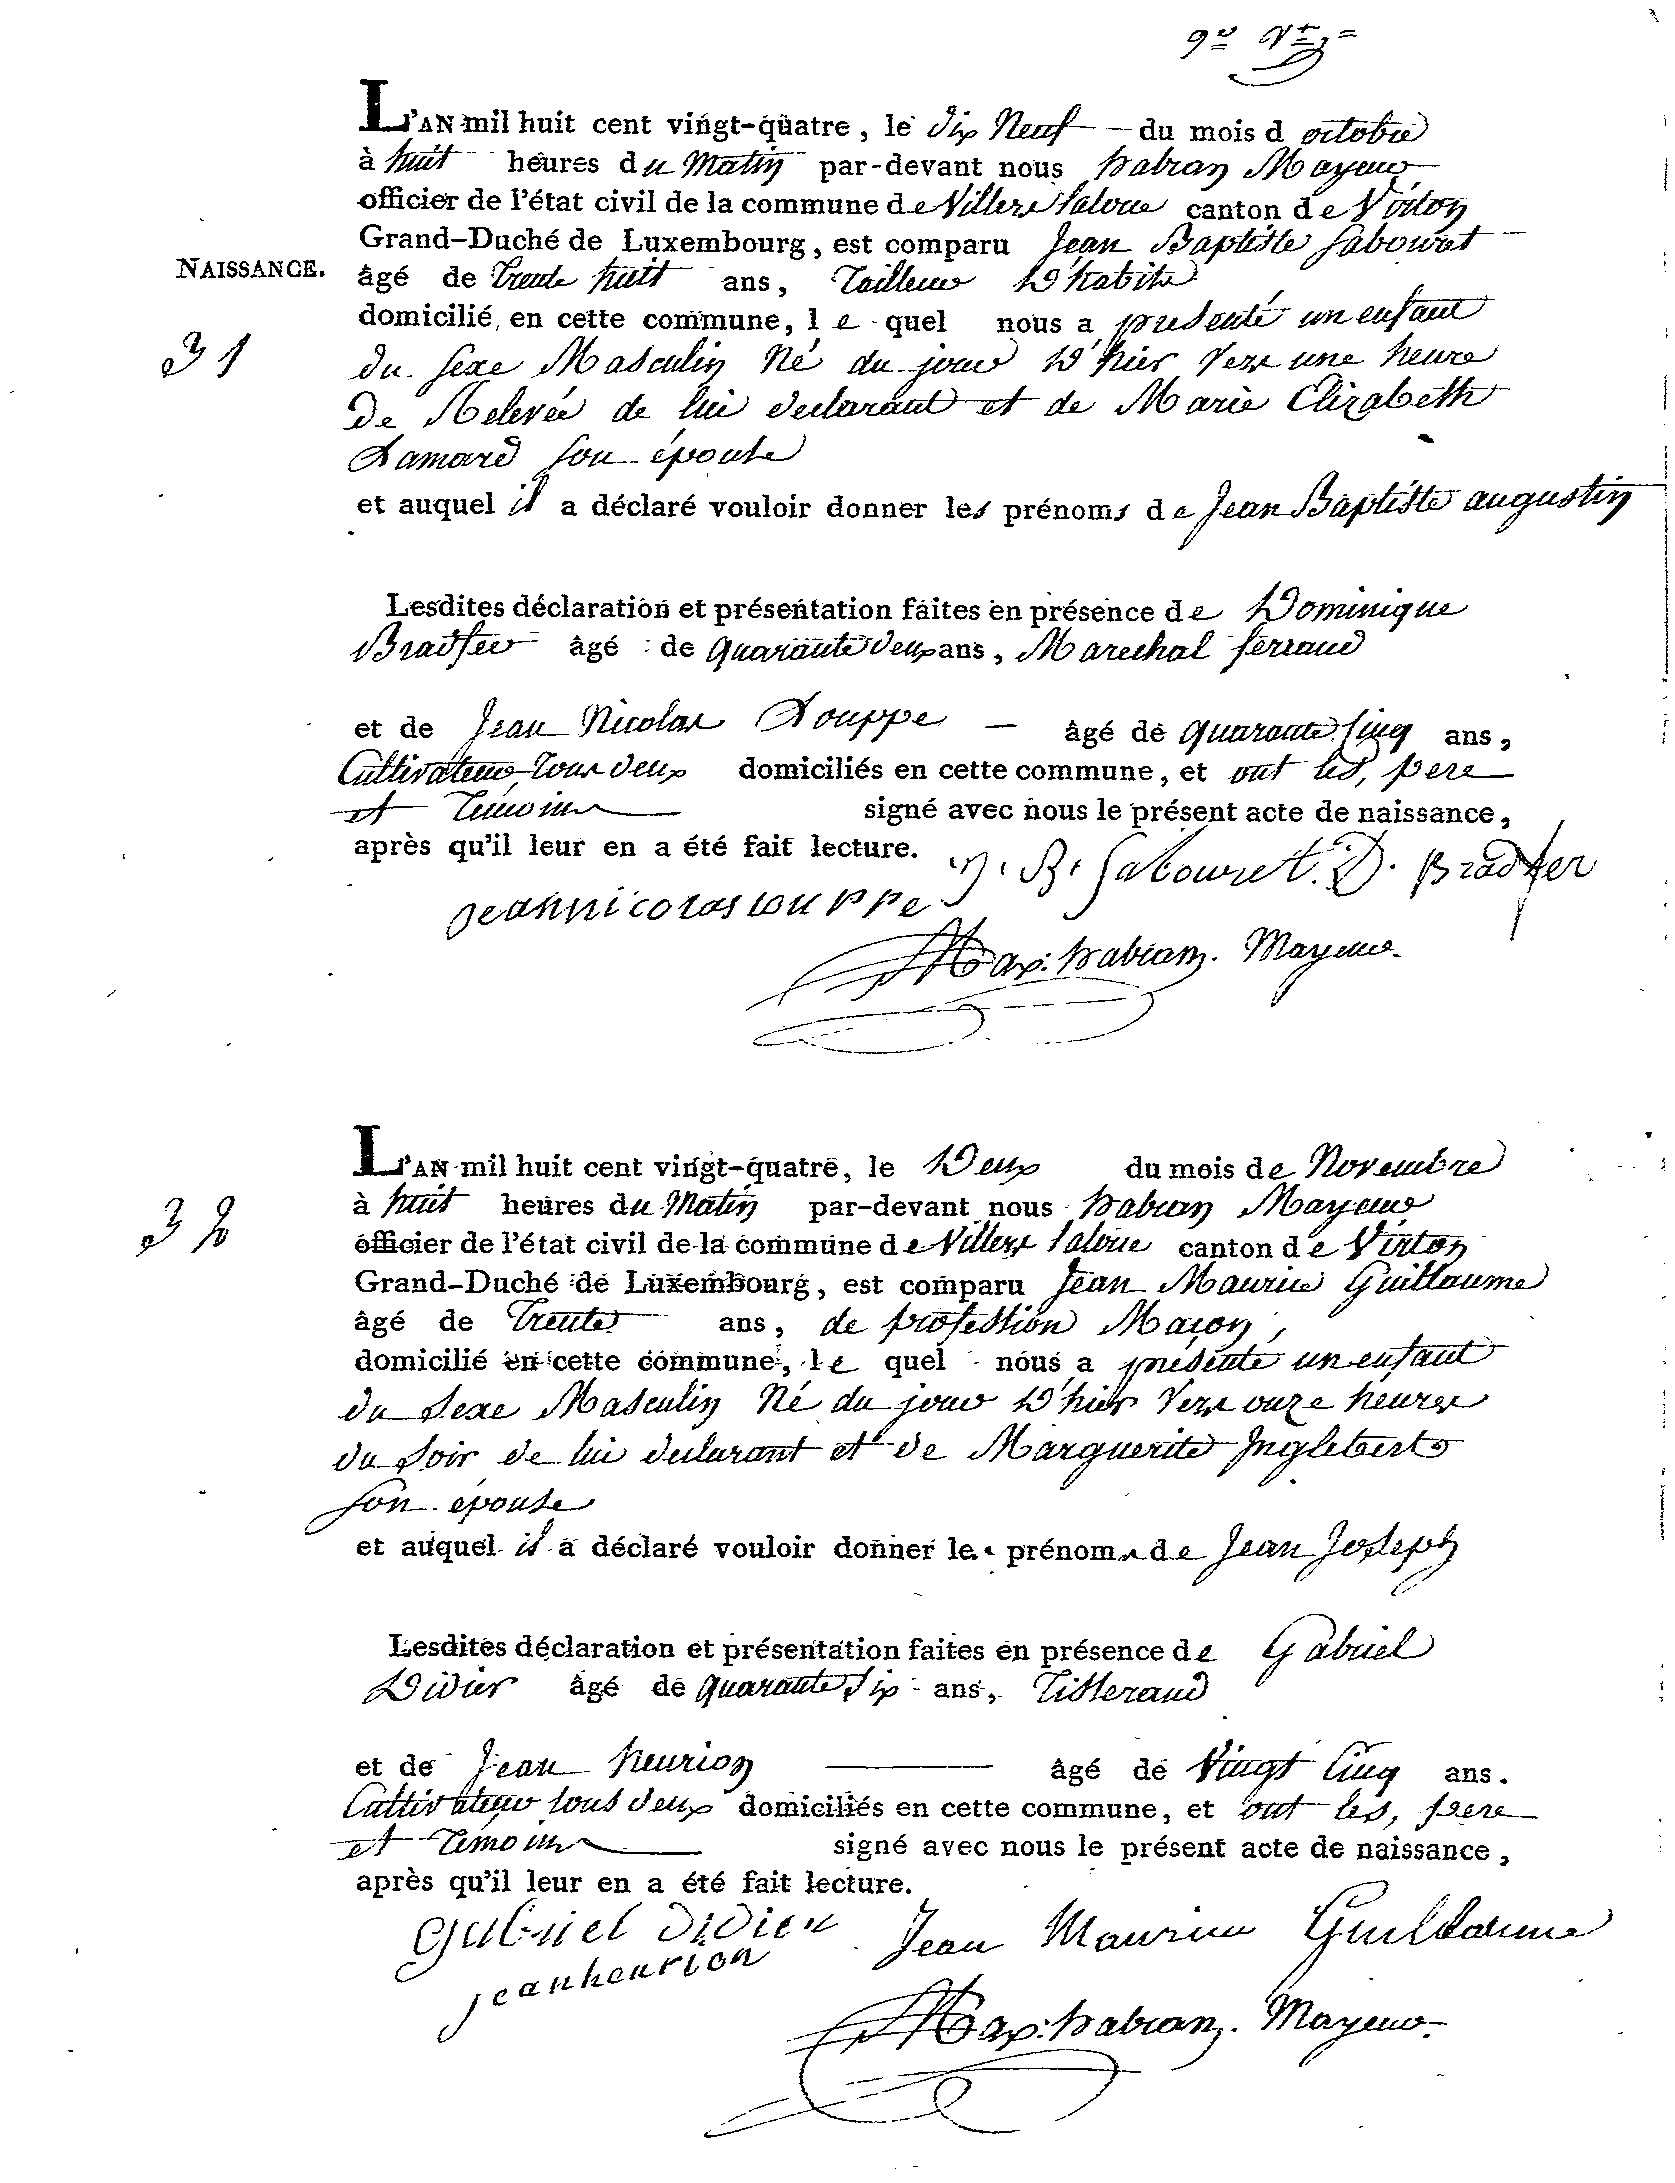 L'AN mil huit cent vingt-quatre, le dix Neuf du mois d octobre
à huit heures du Matin par-devant nous habran Mayeur
officier de l'état civil de la commune de Villers laloue canton de Virton
Grand-Duché de Luxembourg, est comparu Jean Baptiste Sabouret
NAISSANCE.
âgé de Trente huit ans, Tailleur D'habits
domicilié en cette commune, le quel nous a présenté un enfant
31
du sexe Masculin Né du jour D'hier Vers une heure
De Relevée de lui declarant et de Marie Elizabeth
Lamard son épouse
et auquel il a déclaré vouloir donner les prénoms de Jean Baptiste augustin
Lesdites déclaration et présentation faites en présence de Dominique
Bradfer âgé de quarante deux ans, Marechal ferrand
et de Jean Nicolas Pouppe âgé de quarante Cinq ans,
Cultivateur, Tous deux domiciliés en cette commune, et ont les, pere
et Témoins signé avec nous le présent acte de naissance,
après qu'il leur en a été fait lecture.
J. B. Sabouret. D. Bradfer
jean nicolas pouppe
Max. habran. Mayeur.
L'AN mil huit cent vingt-quatre, le Deux du mois de Novembre
32
à huit heures du Matin par-devant nous habran Mayeur
officier de l'état civil de la commune de Villers laloue canton de Virton
Grand-Duché de Luxembourg, est comparu Jean Maurice Guillaume
âgé de Trente ans, de profession Maçon,
domicilié en cette commune, le quel nous a présenté un enfant
du Sexe Masculin Né du jour D'hier Vers onze heures
du Soir de lui declarant et de Marguerite Inglebert
son épouse
et auquel il a déclaré vouloir donner les prénoms de Jean Joseph
Lesdites déclaration et présentation faites en présence de Gabriel
Didier âgé de quarante Six ans, Tisserand
et de Jean heurion âgé de Vingt Cinq ans.
Cultivateur tous deux domiciliés en cette commune, et ont les, pere
et Témoins signé avec nous le présent acte de naissance,
après qu'il leur en a été fait lecture.
gabriel didier Jean Maurice Guillaume
jean heurion
Max. habran. Mayeur.